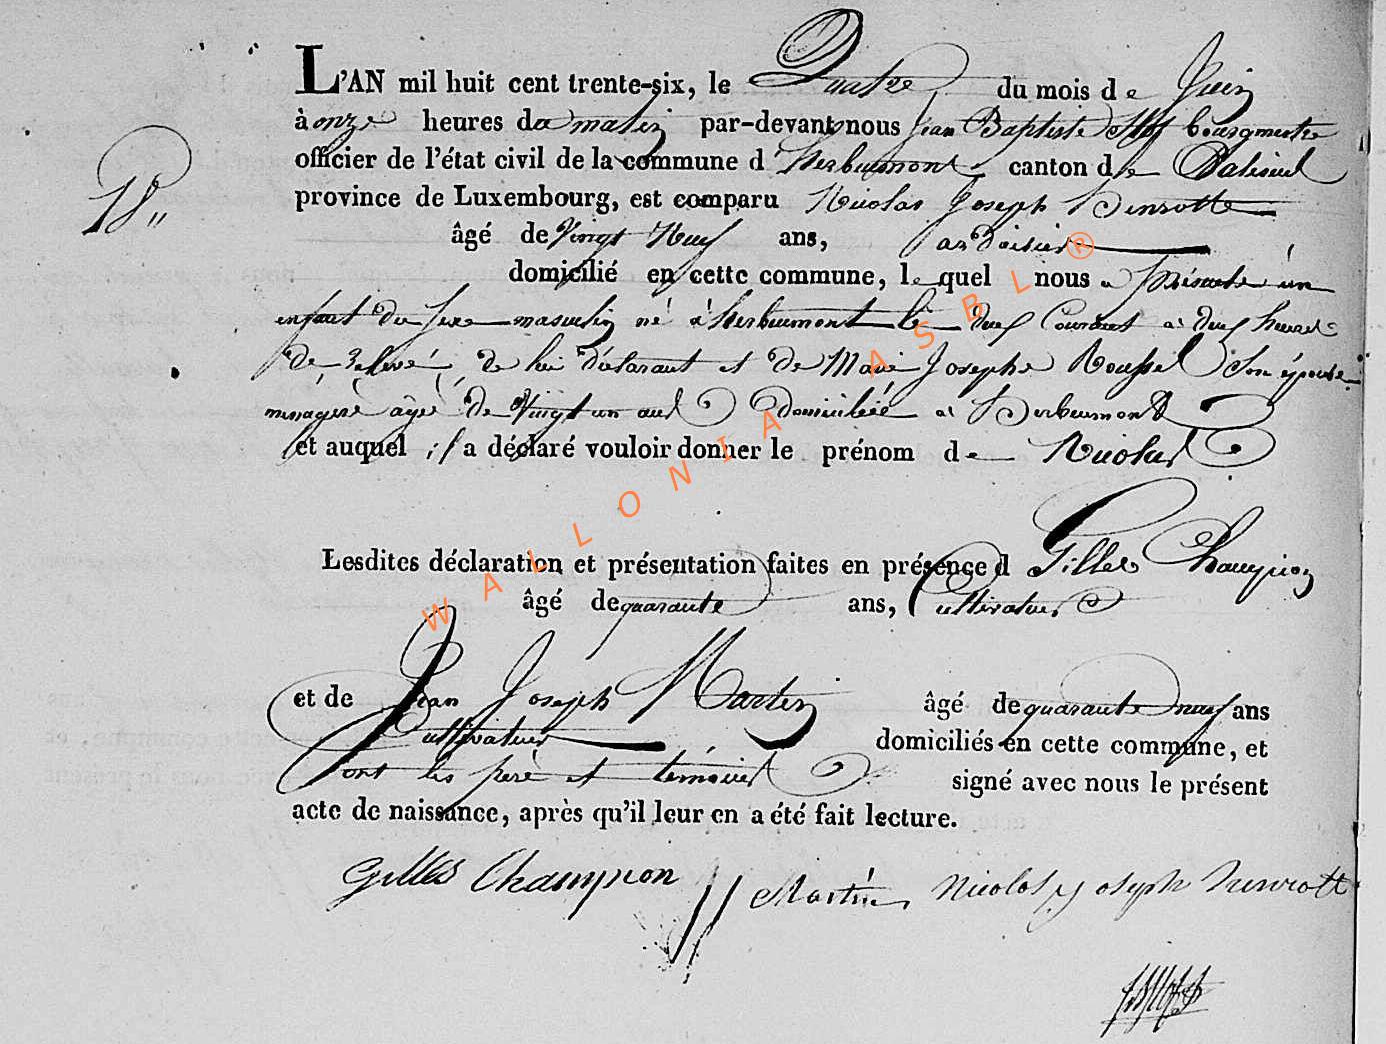 L'AN mil huit cent trente-six, le Quatre du mois de Juin
à onze heures du matin par-devant nous Jean Baptiste bourgmestre
officier de l'état civil de la commune d'Herbeumont canton de Paliseul
18
province de Luxembourg, est comparu Nicolas Joseph Henrotte
âgé de Vingt Neuf ans, ardoisier
domicilié en cette commune, lequel nous a présenté un
enfant du sexe masculin né à herbeumont le deux Courant à deux heures
de relevé, de lui déclarant et de Marie Josephe Roussel Son épouse
ménagère agée de Vingt un ans domiciliée à herbeumont
et auquel il a déclaré vouloir donner le prénom de Nicolas
Lesdites déclaration et présentation faites en présence d Gilles Champion
âgé de quarante ans, Cultivateur
et de Jean Joseph Martin âgé de quarante neuf ans
Cultivateur domiciliés en cette commune, et
ont les père et témoins signé avec nous le présent
acte de naissance, après qu'il leur en a été fait lecture.
Gilles Champion JJ Martin Nicolas Joseph henrotte
WALLONIA ASBL ®